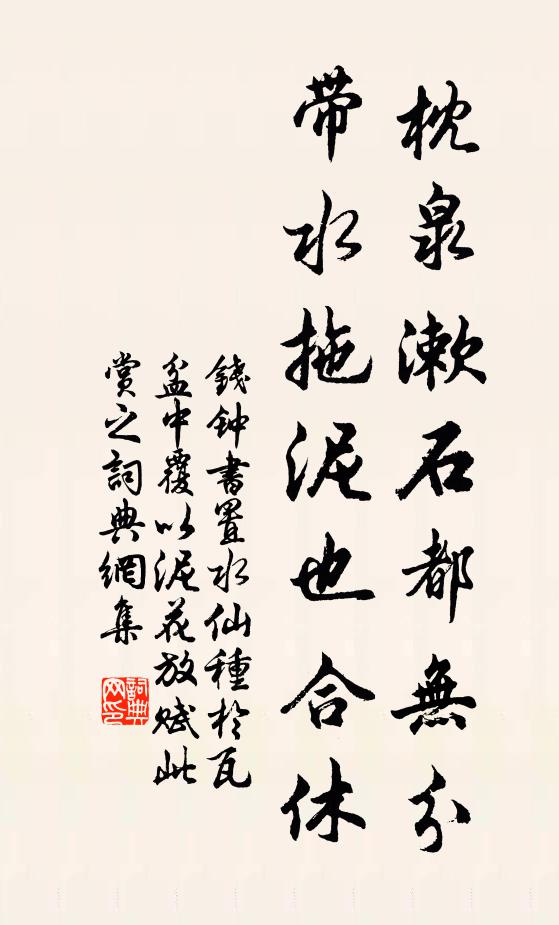 枕泉漱石都無分
带水拖泥也合休
錢钟書置水仙種於瓦
盆中覆以泥花放赋此
賞之詞典網集
詞典网印